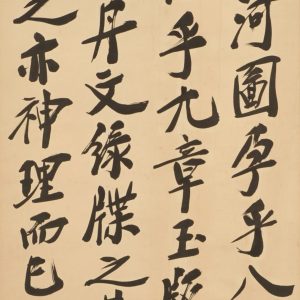 河圖孕乎八
乎九章玉版
丹文綠牒之
之亦神理而已